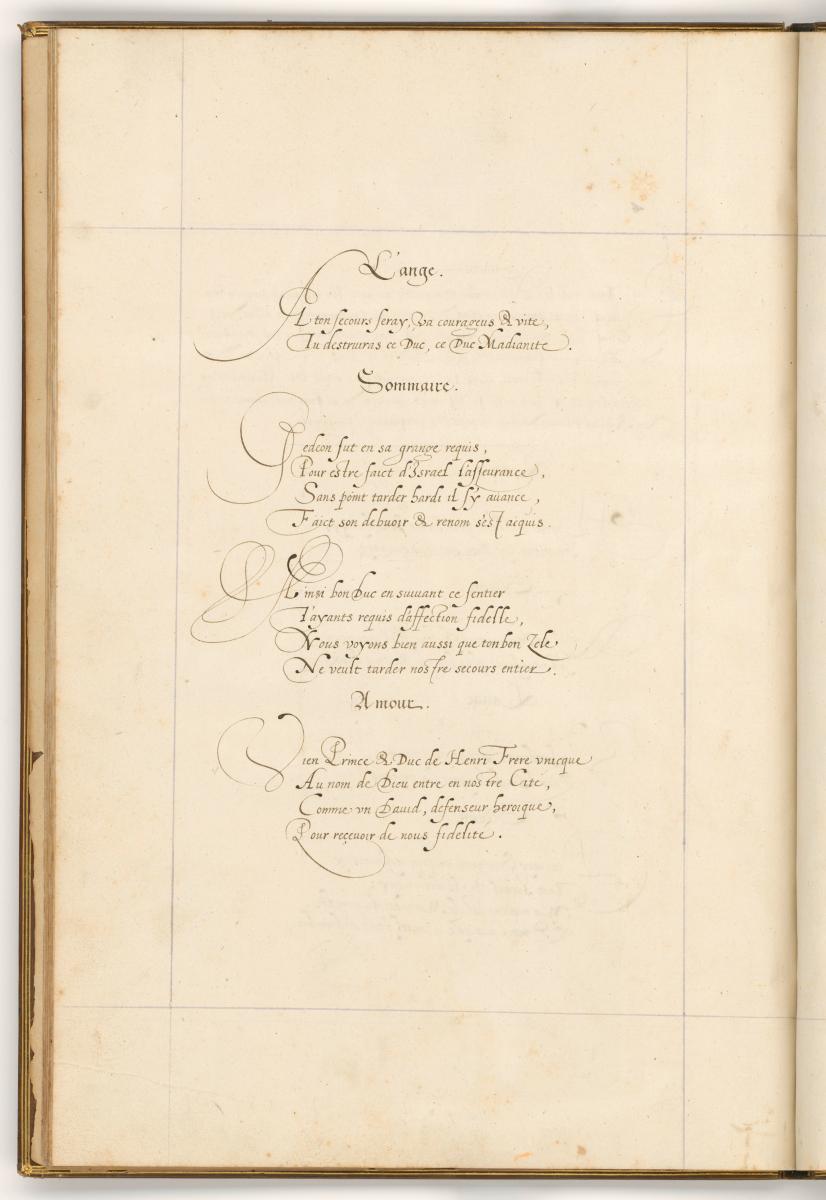 L'ange.
A ton secours seray, va courageus & vite,
Tu destruiras ce Duc, ce Duc Madianite.
Sommaire.
Gedeon fut en sa grange requis,
Pour estre faict d'Israel l'asseurance,
Sans point tarder hardi il s'y auance,
Faict son debuoir & renom s'est acquis.
Ainsi bon Duc en suiuant ce sentier
T'ayants requis d'affection fidelle,
Nous voyons bien aussi que ton bon Zele
Ne veult tarder nostre secours entier.
Amour.
Vien Prince & Duc de Henri Frere vnicque
Au nom de Dieu entre en nostre Cité,
Comme vn Dauid, defenseur heroique,
Pour reçevoir de nous fidelité.